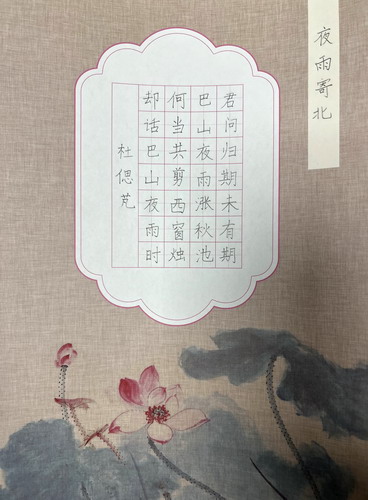 夜雨寄北
君问归期未有期
巴山夜雨涨秋池
何当共剪西窗烛
却话巴山夜雨时
杜偲芃